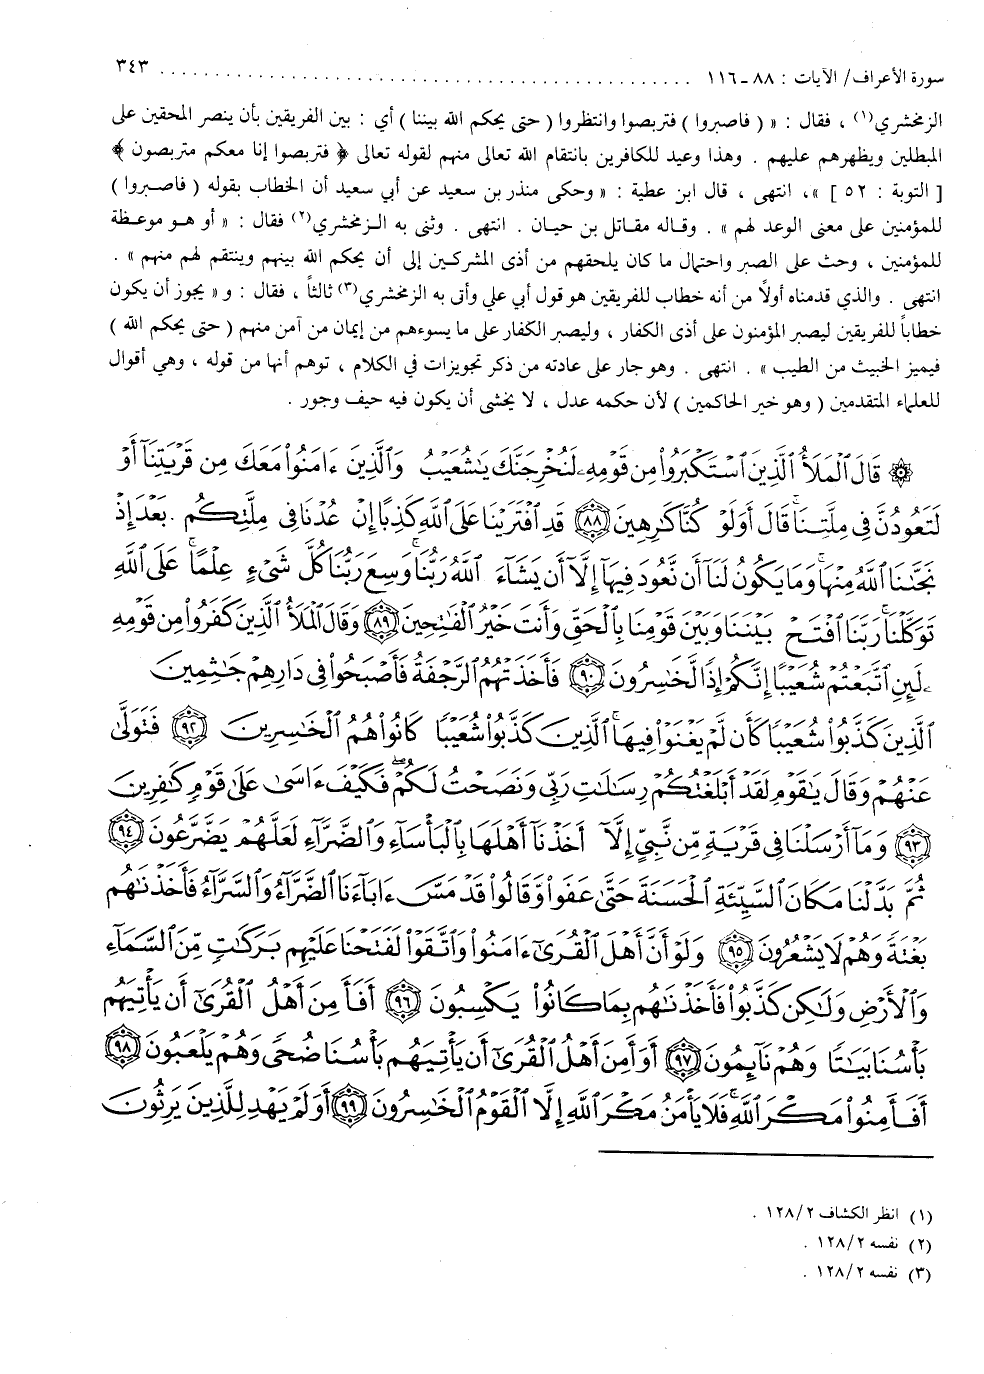 سورة الأعراف / الآيات : ٨٨ ـ ١١٦ ........................................ ٣٤٣
الزمخشري(١) ، فقال : « ( فاصبروا ) فتربصوا وانتظروا ( حتى يحكم الله بيننا ) أي : بين الفريقين بأن ينصر المحقين على
المبطلين ويظهرهم عليهم . وهذا وعيد للكافرين بانتقام الله تعالى منهم لقوله تعالى ﴿ فتربصوا إنا معكم متربصون ﴾
[ التوبة : ٥٢ ] »، انتهى ، قال ابن عطية : « وحكى منذر بن سعيد عن أبي سعيد أن الخطاب بقوله ( فاصبروا )
للمؤمنين على معنى الوعد لهم » . وقاله مقاتل بن حيان . انتهى . وثنى به الزمخشري(٢) فقال : « أو هو موعظة
للمؤمنين ، وحث على الصبر واحتمال ما كان يلحقهم من أذى المشركين إلى أن يحكم الله بينهم وينتقم لهم منهم » .
انتهى . والذي قدمناه أولاً من أنه خطاب للفريقين هو قول أبي علي وأتى به الزمخشري(٣) ثالثاً ، فقال : و « يجوز أن يكون
خطاباً للفريقين ليصبر المؤمنون على أذى الكفار ، وليصبر الكفار على ما يسوءهم من إيمان من آمن منهم ( حتى يحكم الله )
فيميز الخبيث من الطيب » . انتهى . وهو جار على عادته من ذكر تجويزات في الكلام ، توهم أنها من قوله ، وهي أقوال
للعلماء المتقدمين ( وهو خير الحاكمين ) لأن حكمه عدل ، لا يخشى أن يكون فيه حيف وجور .
۞ قَالَ ٱلْمَلَأُ ٱلَّذِينَ ٱسْتَكْبَرُوا۟ مِن قَوْمِهِۦ لَنُخْرِجَنَّكَ يَـٰشُعَيْبُ وَٱلَّذِينَ ءَامَنُوا۟ مَعَكَ مِن قَرْيَتِنَآ أَوْ
لَتَعُودُنَّ فِى مِلَّتِنَا ۚ قَالَ أَوَلَوْ كُنَّا كَـٰرِهِينَ ٨٨ قَدِ ٱفْتَرَيْنَا عَلَى ٱللَّهِ كَذِبًا إِنْ عُدْنَا فِى مِلَّتِكُم بَعْدَ إِذْ
نَجَّىٰنَا ٱللَّهُ مِنْهَا ۚ وَمَا يَكُونُ لَنَآ أَن نَّعُودَ فِيهَآ إِلَّآ أَن يَشَآءَ ٱللَّهُ رَبُّنَا ۚ وَسِعَ رَبُّنَا كُلَّ شَىْءٍ عِلْمًا ۚ عَلَى ٱللَّهِ
تَوَكَّلْنَا ۚ رَبَّنَا ٱفْتَحْ بَيْنَنَا وَبَيْنَ قَوْمِنَا بِٱلْحَقِّ وَأَنتَ خَيْرُ ٱلْفَـٰتِحِينَ ٨٩ وَقَالَ ٱلْمَلَأُ ٱلَّذِينَ كَفَرُوا۟ مِن قَوْمِهِ
ۦ لَئِنِ ٱتَّبَعْتُمْ شُعَيْبًا إِنَّكُمْ إِذًا لَّخَـٰسِرُونَ ٩٠ فَأَخَذَتْهُمُ ٱلرَّجْفَةُ فَأَصْبَحُوا۟ فِى دَارِهِمْ جَـٰثِمِينَ
ٱلَّذِينَ كَذَّبُوا۟ شُعَيْبًا كَأَن لَّمْ يَغْنَوْا۟ فِيهَا ۚ ٱلَّذِينَ كَذَّبُوا۟ شُعَيْبًا كَانُوا۟ هُمُ ٱلْخَـٰسِرِينَ ٩٢ فَتَوَلَّىٰ
عَنْهُمْ وَقَالَ يَـٰقَوْمِ لَقَدْ أَبْلَغْتُكُمْ رِسَـٰلَـٰتِ رَبِّى وَنَصَحْتُ لَكُمْ ۖ فَكَيْفَ ءَاسَىٰ عَلَىٰ قَوْمٍ كَـٰفِرِينَ
٩٣ وَمَآ أَرْسَلْنَا فِى قَرْيَةٍ مِّن نَّبِىٍّ إِلَّآ أَخَذْنَآ أَهْلَهَا بِٱلْبَأْسَآءِ وَٱلضَّرَّآءِ لَعَلَّهُمْ يَضَّرَّعُونَ ٩٤
ثُمَّ بَدَّلْنَا مَكَانَ ٱلسَّيِّئَةِ ٱلْحَسَنَةَ حَتَّىٰ عَفَوا۟ وَّقَالُوا۟ قَدْ مَسَّ ءَابَآءَنَا ٱلضَّرَّآءُ وَٱلسَّرَّآءُ فَأَخَذْنَـٰهُم
بَغْتَةً وَهُمْ لَا يَشْعُرُونَ ٩٥ وَلَوْ أَنَّ أَهْلَ ٱلْقُرَىٰٓ ءَامَنُوا۟ وَٱتَّقَوْا۟ لَفَتَحْنَا عَلَيْهِم بَرَكَـٰتٍ مِّنَ ٱلسَّمَآءِ
وَٱلْأَرْضِ وَلَـٰكِن كَذَّبُوا۟ فَأَخَذْنَـٰهُم بِمَا كَانُوا۟ يَكْسِبُونَ ٩٦ أَفَأَمِنَ أَهْلُ ٱلْقُرَىٰٓ أَن يَأْتِيَهُم
بَأْسُنَا بَيَـٰتًا وَهُمْ نَآئِمُونَ ٩٧ أَوَأَمِنَ أَهْلُ ٱلْقُرَىٰٓ أَن يَأْتِيَهُم بَأْسُنَا ضُحًى وَهُمْ يَلْعَبُونَ ٩٨
أَفَأَمِنُوا۟ مَكْرَ ٱللَّهِ ۚ فَلَا يَأْمَنُ مَكْرَ ٱللَّهِ إِلَّا ٱلْقَوْمُ ٱلْخَـٰسِرُونَ ٩٩ أَوَلَمْ يَهْدِ لِلَّذِينَ يَرِثُونَ
(١) انظر الكشاف ٢/ ١٢٨ .
(٢) نفسه ٢/ ١٢٨ .
(٣) نفسه ٢/ ١٢٨ .